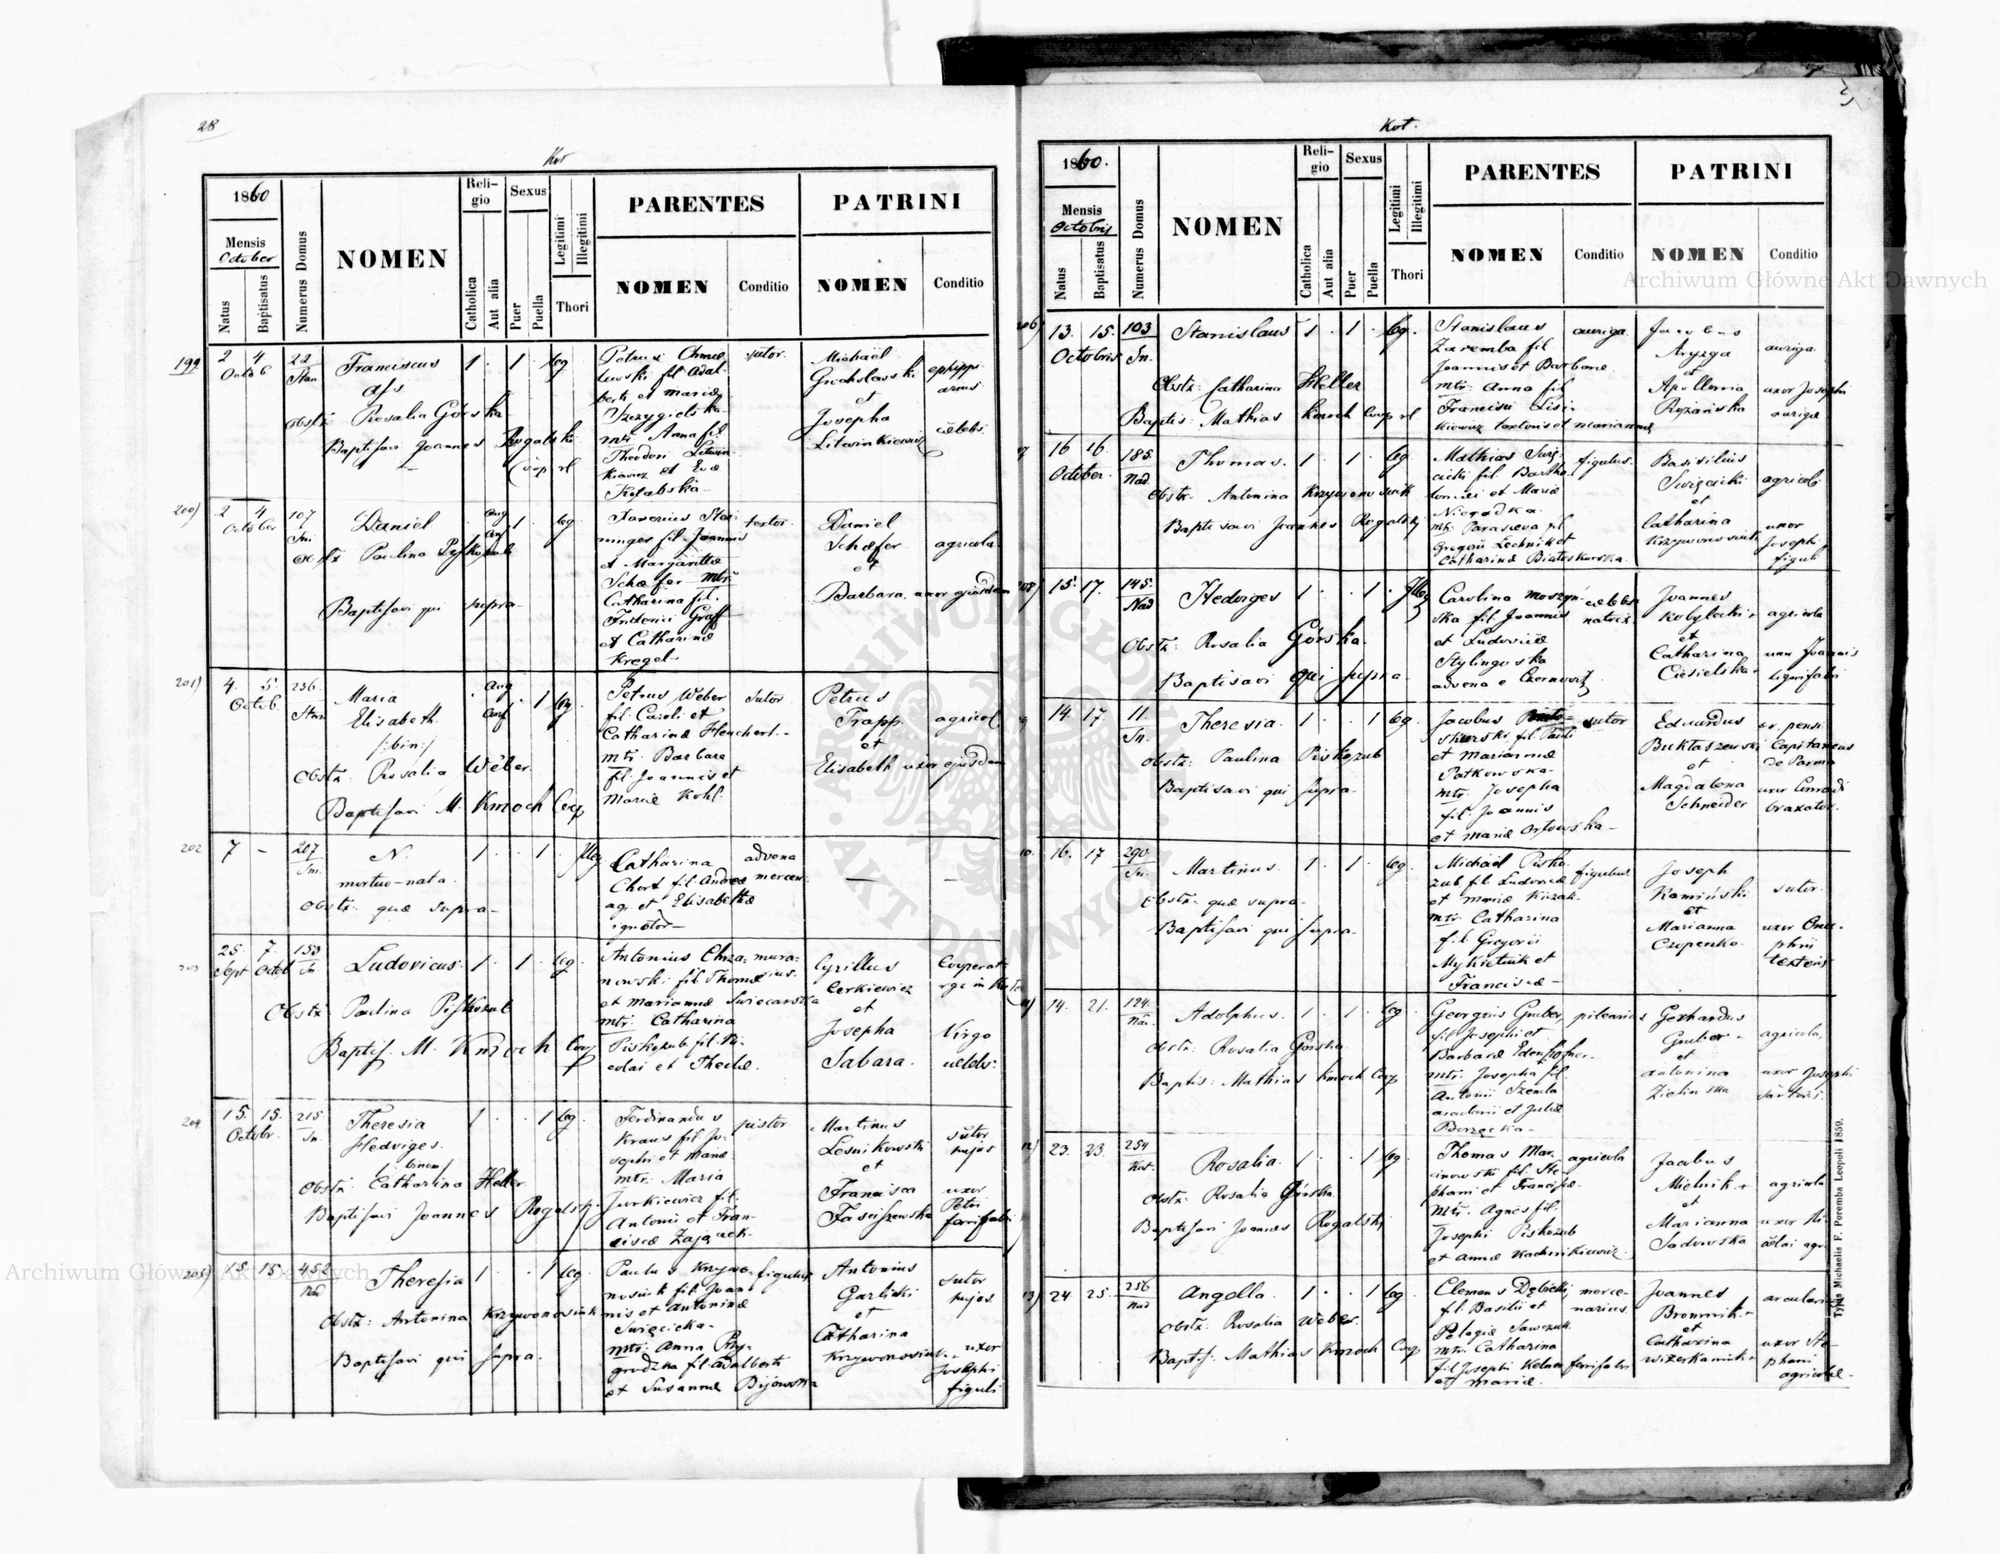 28
Kot
1860
Mensis
October
Natus
Baptisatus
Numerus Domus
NOMEN
Reli-
gio
Catholica
Aut alia
Sexus
Puer
Puella
Legitimi
Illegitimi
Thori
PARENTES
NOMEN
Conditio
PATRINI
NOMEN
Conditio
199
2 4
Octob
22
Stan.
Franciscus
1 . 1 . leg
obstz Rosalia Górska
Baptisavi Joannes Rogalski
Coop rl
Petrus Chmie
lewski fil. Adal
berti et Mariæ
mtr. Anna fil.
Theodori Litwin
kiewicz et Evæ
sutor.
Michaël
et
Josepha
Litwinkiewicz
ephipp
arius
cœlebs.
200)
2 4
October
107
Daniel
aug
conf
1 . leg
obstz Paulina Piskozub
Baptisavi qui supra
Xaverius
ninger fil. Joannis
et Margarittæ
Schæfer mtr.
Catharina fil.
Friderici Graff
et Catharinæ
Kregel
textor.
Daniel
Schæfer
et
Barbara uxor ejusdem
agricola.
201)
4. 5.
Octob.
236.
Stan
Maria
Elisabeth
/:bin:/
aug
conf
. 1 leg
Obstz: Rosalia Wéber
Baptisavi M. Kmoch Coop
Petrus Weber
fil. Caroli et
Catharinæ Henchert.
mtr. Barbara
fil. Joannis et
Mariæ Kohl.
sutor
Petrus
Trapp
et
Elisabeth uxor ejusdem
agricol.
202
7 -
207
Sn.
N.
mortuo-nata.
1 . . 1 . Illeg
Obstz. quæ supra
Catharina
Chort fil. Andreæ
agr. et Elisabethæ
ignotor
advena
mercen
203
25. 7.
Sept Octob
153
Sn.
Ludovicus
1 . 1 . leg
Obstz Paulina Piskozub
Baptis. M. Kmoch Coop
Antonius Chrza
nowski fil. Thomæ
et Mariannæ Swiecarska
mtr. Catharina
Piskozub fil. Ni
colai et Theclæ.
mura-
rius.
Cyrillus
Cerkiewicz
et
Josepha
Sabara.
Cooperat
Virgo
cœlebs.
204
15. 15.
Octobr.
215
Sn.
Theresia
Hedviges.
/:binom:/
1 . . 1 leg
Obstz: Catharina Heller
Baptisavi Joannes Rogalski
Ferdinandus
Kraus fil. Jo-
sephi et Mariæ
mtr. Maria
Jurkiewicz fil.
Antonii et Fran-
ciscæ Zajączk.
pistor
Martinus
Lesnikowski
et
Francisca
Fasciszewska
sutor
hujas
uxor
Petri
ferrifabri
205)
15. 15.
452
Nad
Theresia
1 . . 1 leg
Obstz: Antonina Krzywonosiuk
Baptisavi qui supra.
Paulus Krzywo-
nosiuk fil. Joan
nis et Antoninæ
Swięcicka
mtr. Anna Przy-
grodzka fil. Adalberti
et Susannæ Bijowska
figulus
Antonius
Garlicki
et
Catharina
Krzywonosiuk
sutor
hujas
uxor
Josephi
figuli
Kot.
1860.
Mensis
Octobris
Natus
Baptisatus
Numerus Domus
NOMEN
Reli-
gio
Catholica
Aut alia
Sexus
Puer
Puella
Legitimi
Illegitimi
Thori
PARENTES
NOMEN
Conditio
PATRINI
NOMEN
Conditio
206)
13. 15.
Octobris
103
Sn.
Stanislaus
1 . 1 . leg.
Obstz: Catharina Heller
Baptis: Mathias Kmoch Coop rl
Stanislaus
Zaremba fil
Joannis et Barbaræ
mtr. Anna fil
Francisci Lisi-
kiewicz textoris et Mariannæ
auriga
Jacobus
Aryzga
et
Apollonia
Rożańska
auriga
uxor Josephi
aurigæ
16 16
October
185.
Nad
Thomas.
1 . 1 . leg
Obstz. Antonina Krzywonosiuk
Baptisavi Joannes Rogalski
Mathias Swię
cicki fil Bartho
lomei et Mariæ
mtr. Parasceva fil
Gregorii Lechnik et
Catharinæ Białoskurska.
figulus.
Basilius
Swięcicki
et
Catharina
Krzywonosiuk
agricola
uxor
Josephi
figuli
208)
15. 17.
145.
Nad
Hedviges
1 . . 1 . Illeg
Obstz: Rosalia Górska.
Baptisavi qui supra
Carolina Moszyn-
ska fil Joannis
et Ludovicæ
Stylingoska
advena e Czernovitz
cœlebs
natrix
Joannes
Kobylecki
et
Catharina
Ciesielska
agricola
uxor Joannis
lignifabri
14. 17.
11.
Sn.
Theresia.
1 . . 1 leg.
Obstz: Paulina Piskozub
Baptisavi qui supra.
Jacobus
fil Pauli
et Mariannæ
Patkowska
mtr. Josepha
fil. Joannis
et Mariæ Orłowska
sutor
Eduardus
Buktaszewski
et
Magdalena
Schneider
ex pensi
Capitaneus
de Parma
uxor Conradi
braxator.
16. 17
290.
Sn.
Martinus.
1 . 1 . leg
Obstz: quæ supra
Baptisavi qui supra.
Michaël Pisko
zub fil Ludovici
et Mariæ Kozak
mtr. Catharina
fil. Gregorii
Mykietiuk et
Franciscæ
figulus
Joseph
Kamiński
et
Marianna
Czopenko.
sutor.
uxor Onu-
phrii
textoris
14. 21.
124.
Nad.
Adolphus.
1 . 1 . leg.
Obstz: Rosalia Górska
Baptis: Mathias Kmoch Coop
Georgius Gruber,
fil Josephi et
Barbaræ
mtr. Josepha fil.
Antonii Szemla
et Juliæ
Borzęcka
pilearius
Gerhardus
Gruber
et
Antonina
Zielinska
agricola,
uxor Josephi
sartoris.
23. 23.
254
Kot.
Rosalia.
1 . . 1 leg.
Obstz: Rosalia Górska
Baptisavi Joannes Rogalski
Thomas Mar
cinowski fil. Ste-
phani et Franciscæ.
mtr. Agnes fil.
Josephi Piskozub
et Annæ Kachnikiewicz.
agricola
Jacobus
Mielnik
et
Marianna
Sadowska
agricola
uxor Ni-
colai agr.
24. 25.
256
Nad
Angella.
1 . . 1 leg
Obstz: Rosalia Weber.
Baptis. Mathias Kmoch Coop
Clemens Dębicki
fil. Basilii et
Pelagiæ Sawczuk.
mtr. Catharina
fil Josephi Kelner ferrifabri
et Mariæ.
merce-
narius.
Joannes
Bronnik
et
Catharina
arcularius
uxor Ste-
phani
agricolæ
Typis Michaelis F. Poremba Leopoli 1859.
Archiwum Główne Akt Dawnych
Archiwum Główne Akt Dawnych
ARCHIWUM GŁÓWNE AKT DAWNYCH